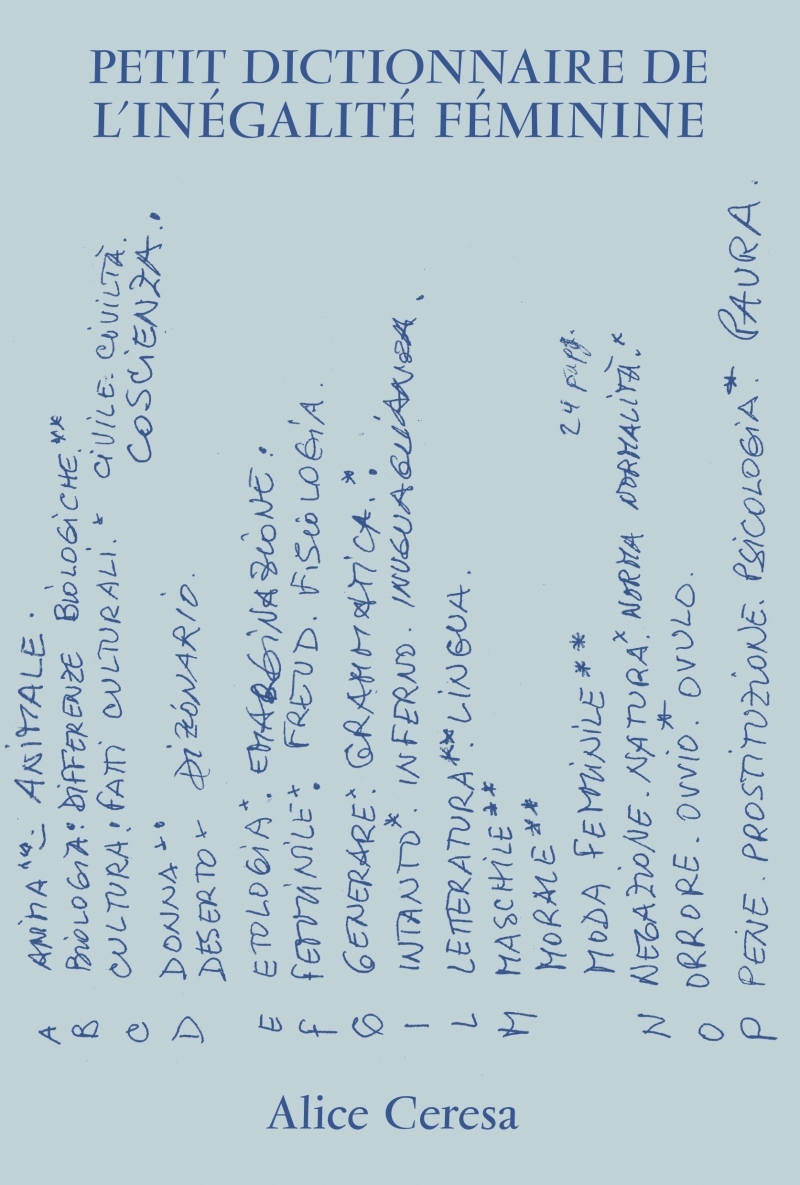 PETIT DICTIONNAIRE DE
L'INÉGALITÉ FÉMININE
A ANIMA**. ANIMALE.
B BIOLOGIA. DIFFERENZE BIOLOGICHE.**
C CULTURA. FATTI CULTURALI.* CIVILE. CIVILTÀ.
COSCIENZA.
D DONNA**
DESERTO+ DIZIONARIO.
E ETOLOGIA+. EMARGINAZIONE.
F FEMMINILE+. FREUD. FISIOLOGIA.
G GENERARE+. GRAMMATICA.*
I INTANTO*. INFERNO. INUGUAGLIANZA.
L LETTERATURA**. LINGUA.
M MASCHILE**
MORALE**
24 pagg.
MODA FEMMINILE**
N NEGAZIONE. NATURA.* NORMA NORMALITÀ.*
O ORRORE. OVVIO.* OVULO.
P PENE. PROSTITUZIONE. PSICOLOGIA.* PAURA.
Alice Ceresa